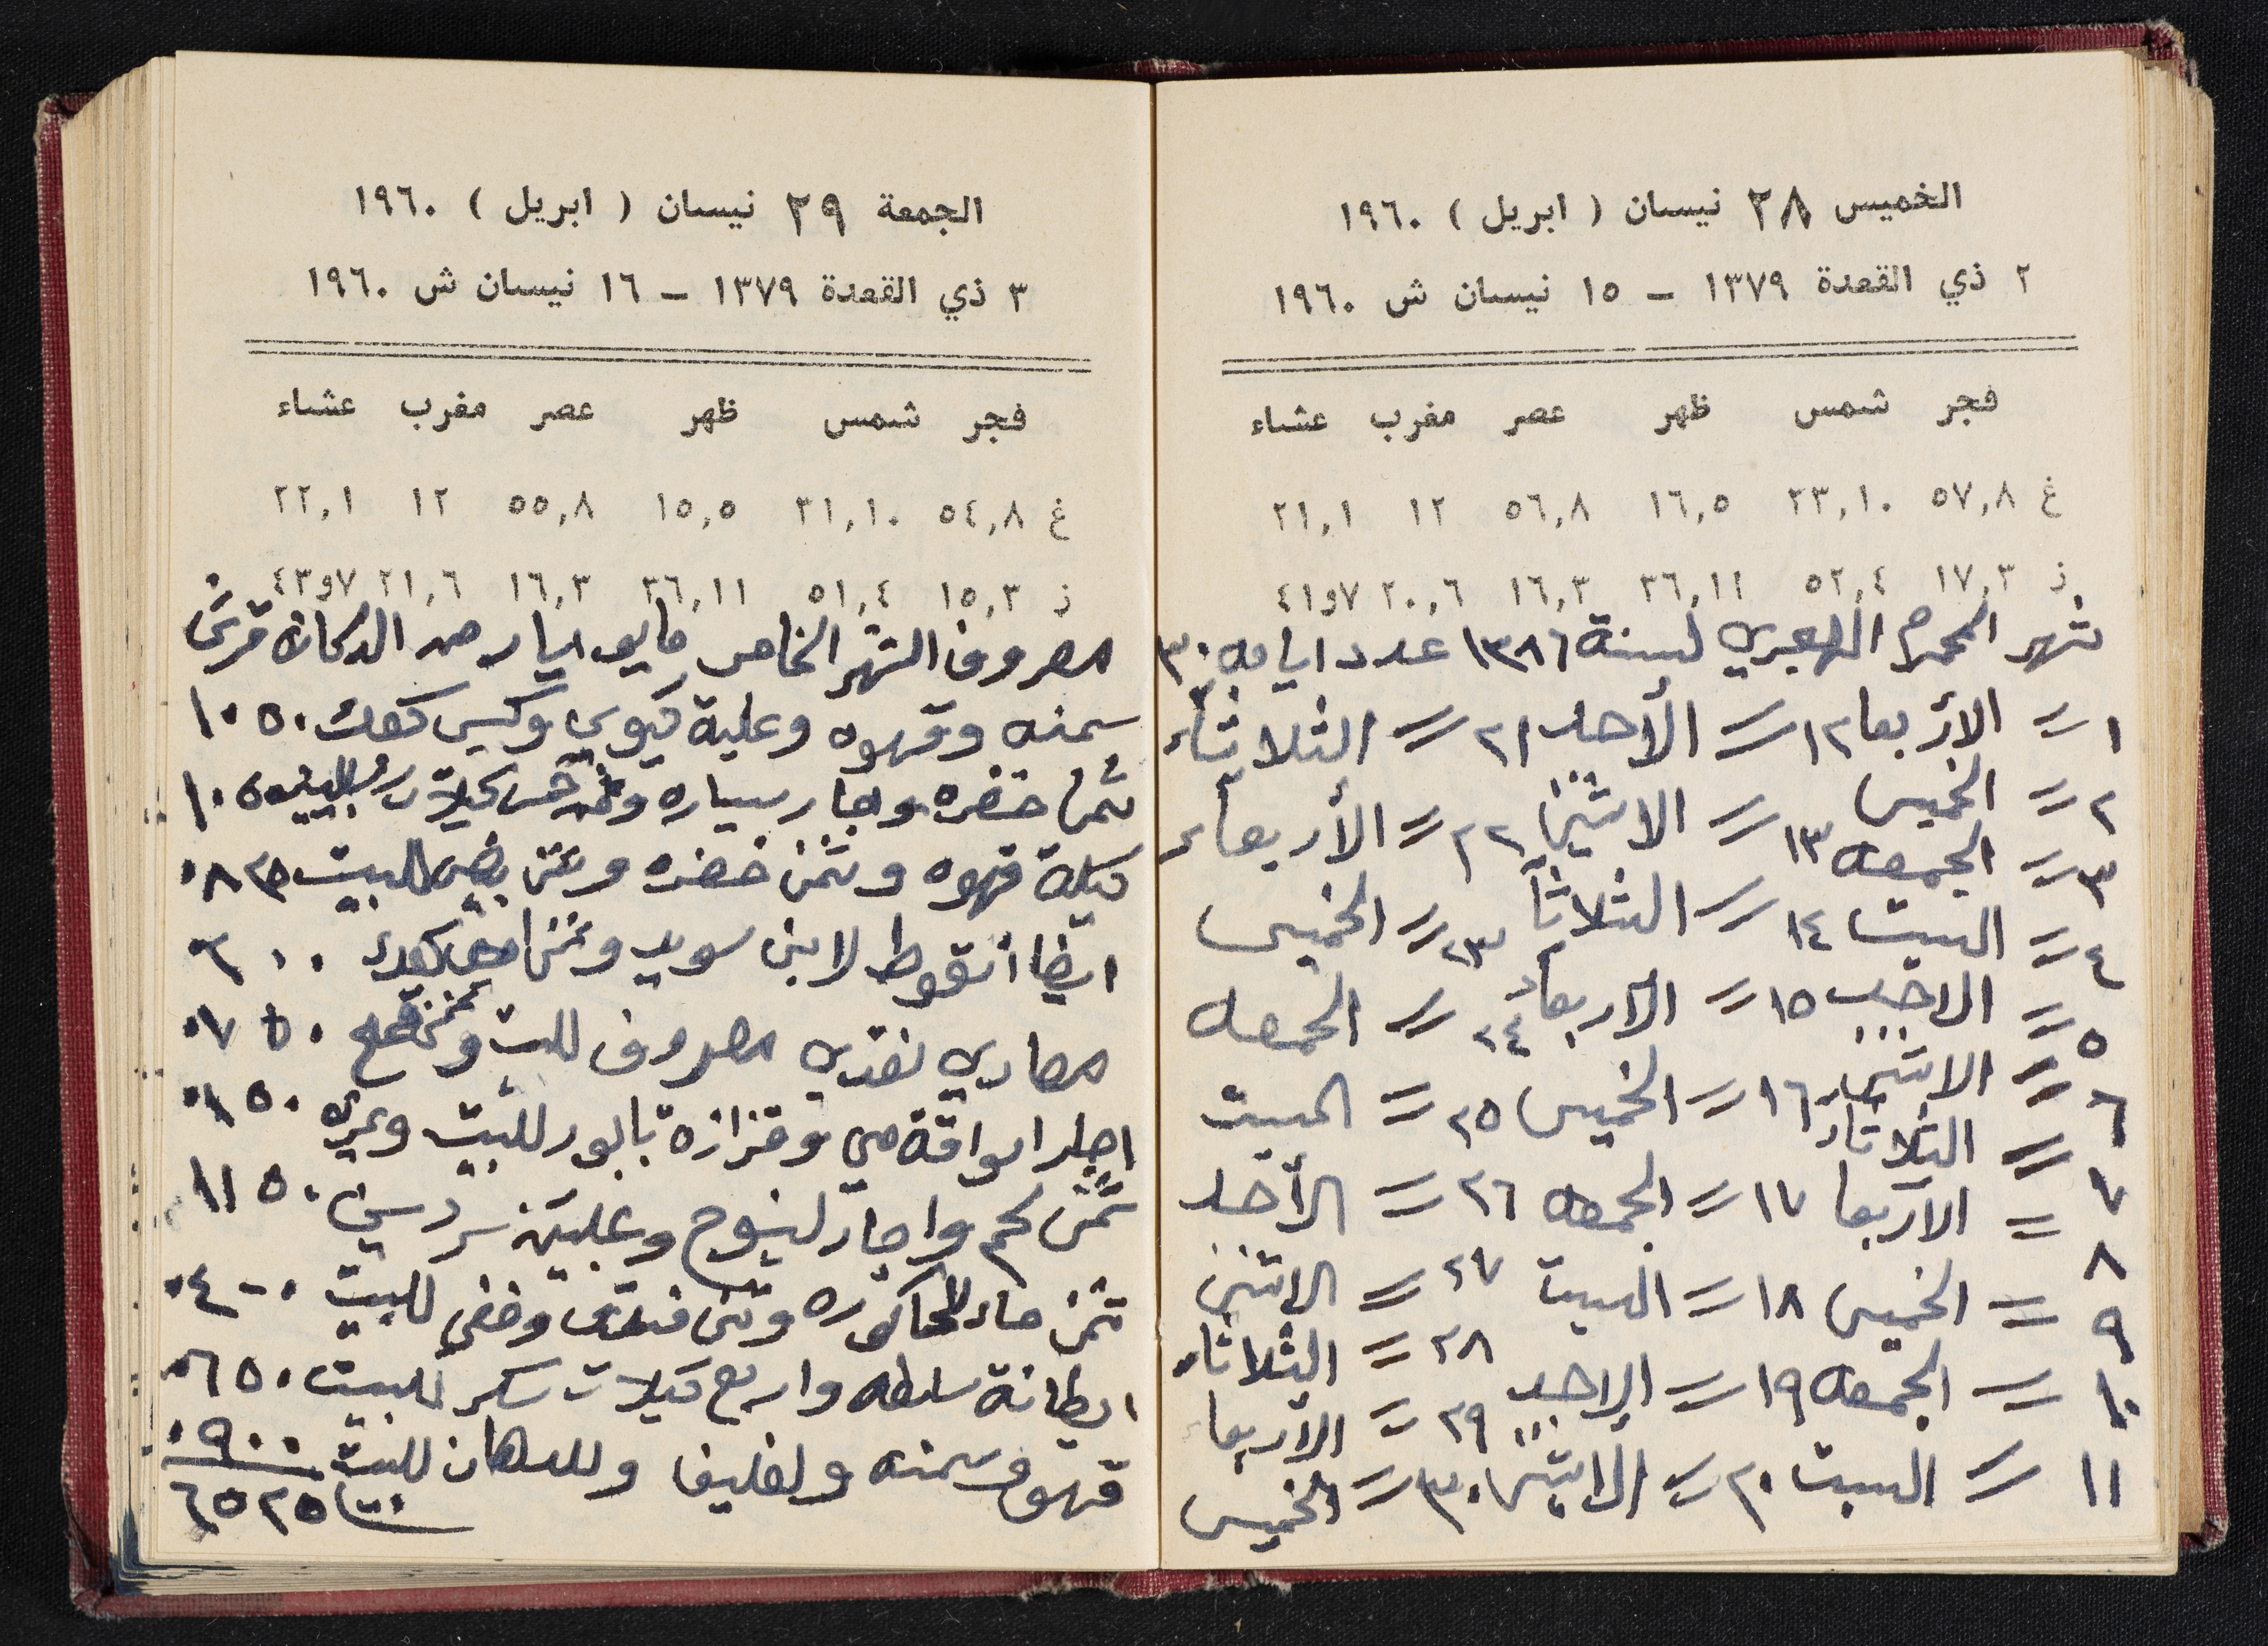 الخميس ٢٨ نيسان ( ابريل ) ١٩٦٠
٢ ذي القعدة ١٣٧٩ - ١٥ نيسان ش ١٩٦٠
فجر شمس ظهر عصر مغرب عشاء
غ ٥٧,٨ ٢٣,١٠ ١٦,٥ ٥٦,٨ ١٢ ٢١,١
ز ١٧,٣ ٥٢,٤ ٣٦,١١ ١٦,٣ ٢٠,٦ ٤١و٧
شهر المحرم الهجري لسنة ١٣٨٦ عدد ايامه ٣٠
١ = الأربعا ١٢ = الأحد ٢١ = الثلاثاء
٢ = الخميس
١٣ = الاثنين ٢٢ = الأربعاء
٣ = الجمعه
٤ = السبت ١٤ = الثلاثا ٢٣ = الخميس
٥ = الاحد ١٥ = الاربعاء ٢٤ = الجمعه
٦ = الاثنين
= الثلاثاء ١٦ = الخميس ٢٥ = السبت
٧ = الاربعا ١٧ = الجمعه ٢٦ = الأحد
٨
٩ = الخميس ١٨ = السبت ٢٧ = الاثنين
١٠ = الجمعه ١٩ = الاحد ٢٨ = الثلاثاء
١١ = السبت ٢٠ = الاثنين ٢٩ = الاربعا
٣٠ = الخميس
الجمعة ٢٩ نيسان ( ابريل ) ١٩٦٠
٣ ذي القعدة ١٣٧٩ - ١٦ نيسان ش ١٩٦٠
فجر شمس ظهر عصر مغرب عشاء
غ ٥٤,٨ ٢١,١٠ ١٥,٥ ٥٥,٨ ١٢ ٢٢,١
ز ١٥,٣ ٥١,٤ ٣٦,١١ ١٦,٣ ٢١,٦ ٤٣و٧
مصروف الشهر الخامس مايو ايار من الدكانه قرش
سمنه وقهوه وعلبة كيوي وكيس كعك ١٠٥٠
ثمن خضره وجار سياره وثمن خمس كيلات للبيت
كيلة قهوه وثمن خضره وثمن بيض للبيت
ايضا انقوط لابن سويد وثمن ٦٠٠
مصاري نقدي مصروف للبيت وثمن قمح ٠٧٥٠
مي وقزازة بابور للبيت
ثمن لحم واجار لينوح وعلبتين سردين ١١٥٠
ثمن ماء للحاكوره وثمن للبيت ٠٤٠٠
ابطانة سلطه واربع كيلات سكر للبيت ٠٦٥٠
قهوه وسمنه ولفليف وللدهان للبيت ٠٩٠٠
٦٥٢٥